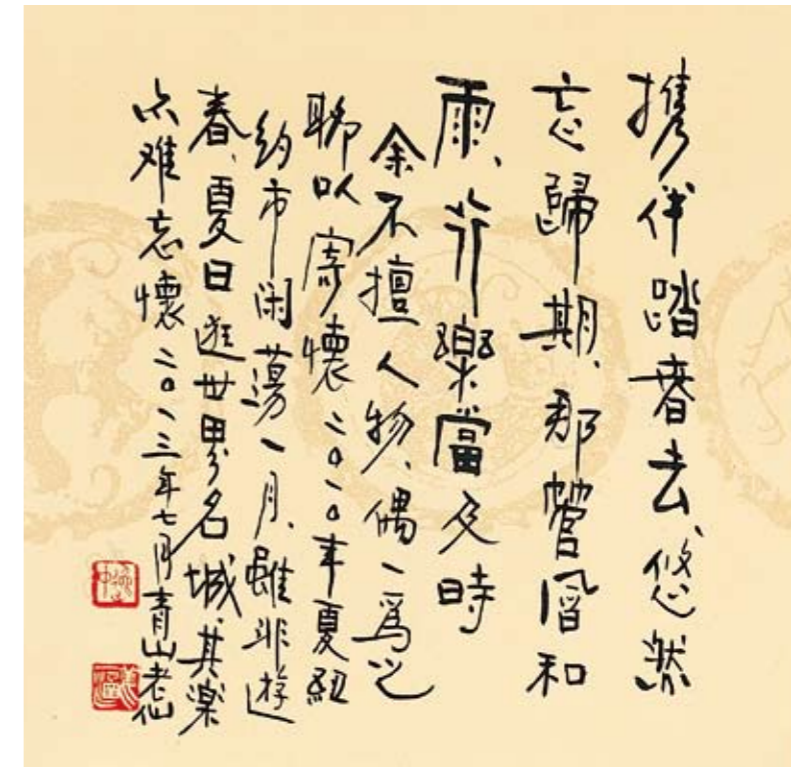 攜伴踏春去、悠然
忘歸期、那管風和
雨、行樂當及時
余不擅人物、偶一爲之
聊以寄懷二〇一〇年夏紐
約市闲蕩一月、雖非遊
春、夏日逛世界名城、其楽
亦难忘懷二〇一三年七月青山老仙